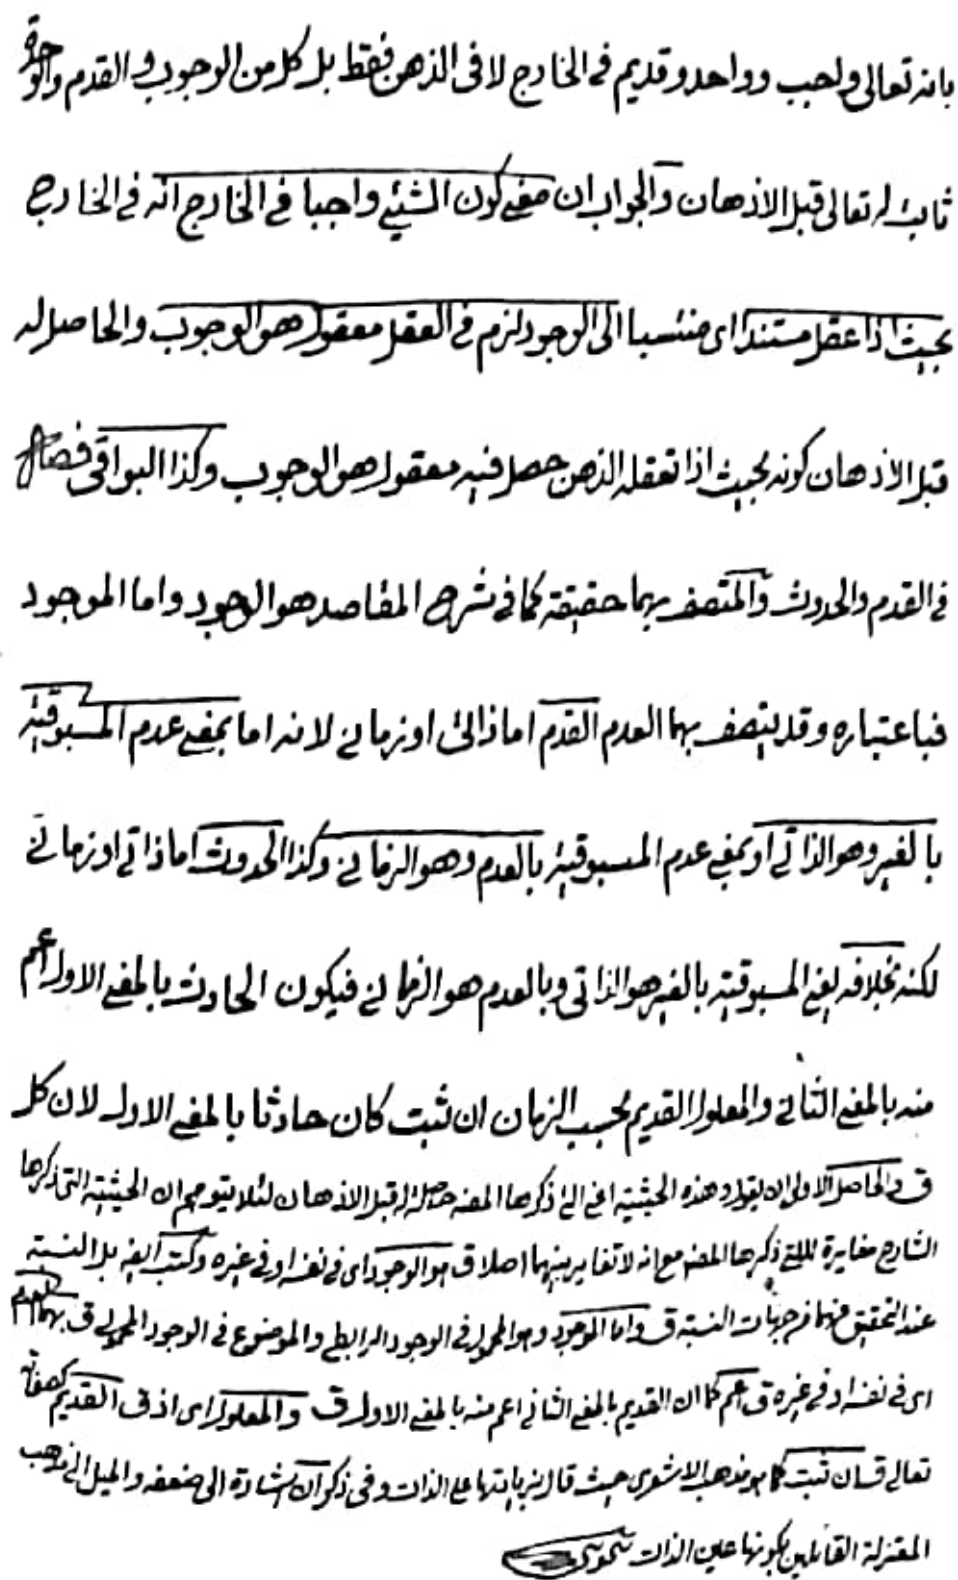 بانه تعالى واجب وواحد وقديم في الخارج لا في الذهن فقط بل كل من الوجوب والقدم والوحدة
ثابت له تعالى قبل الاذهان والجواب ان معنى كون الشيئ واجبا في الخارج انه في الخارج
بحيث اذا عقل مستندا اى منتسبا الى الوجود لزم في العقل معقول هو الوجوب والحاصل له
قبل الأذهان كونه بحيث اذا تعقله الذهن حصل فيه معقول هو الوجوب وكذا البواقى فصل
في القدم والحدوث والمتصف بهما حقيقة كما في شرح المقاصد هو الوجود واما الموجود
فباعتباره وقد يتصف بهما العدم القدم اما ذاتى او زمانى لانه اما بمعنى عدم المسبوقية
بالغير وهو الذاتى او بمعنى عدم المسبوقية بالعدم وهو الزمانى وكذا الحدوث اما ذاتى او زمانى
لكنه بخلافه يعنى المسبوقية بالغير هو الذاتى وبالعدم هو الزمانى فيكون الحادث بالمعنى الاول اعم
منه بالمعنى الثانى والمعلول القديم بحسب الزمان ان ثبت كان حادثا بالمعنى الاول لان كل
ق والحاصل الاولى ان يقول وهذه الحيثية اعنى التى ذكرها المصنف حاصلة له قبل الاذهان لئلا يتوهم ان الحيثية التى ذكرها
الشارح مغايرة للتى ذكرها المصنف مع انه لا تغاير بينهما اصلا ق هو الوجود اى في نفسه او في غيره وكتب ايضا بل النسبة
عند التحقيق فهما من جهات النسبة ق واما الموجود وهو المحمول في الوجود الرابطى والموضوع في الوجود المحمولى ق بهما العدم
اى في نفسه او في غيره ق اعم كما ان القديم بالمعنى الثانى اعم منه بالمعنى الاول ق والمعلول اى اذ ق القديم كصفاته
تعالى ق ان ثبت كما هو مذهب الاشعرى حيث قال بزيادتها على الذات وفي ذكر ان اشارة الى ضعفه والميل الى مذهب
المعتزلة القائلين بكونها عين الذات